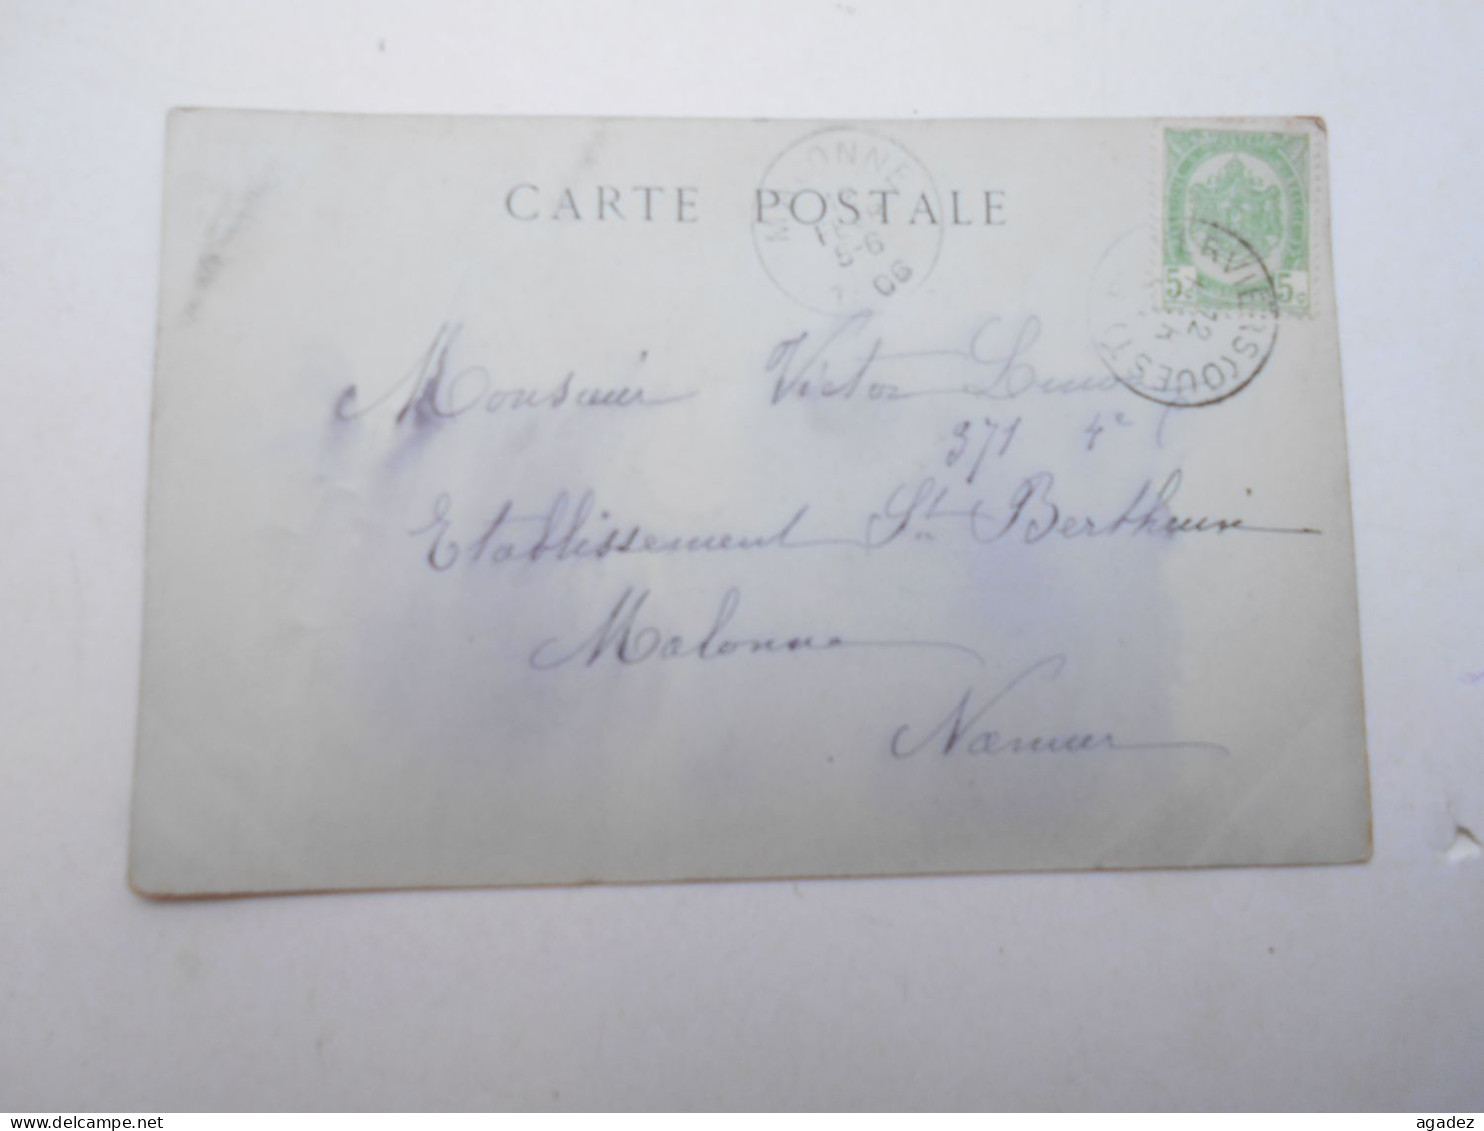 CARTE POSTALE
MALONNE
5-6
06
5 5c
VERVIERS (OUEST)
Monsieur Victor
371 4e
Etablissement St Berthuin
Malonne
Namur
agadez